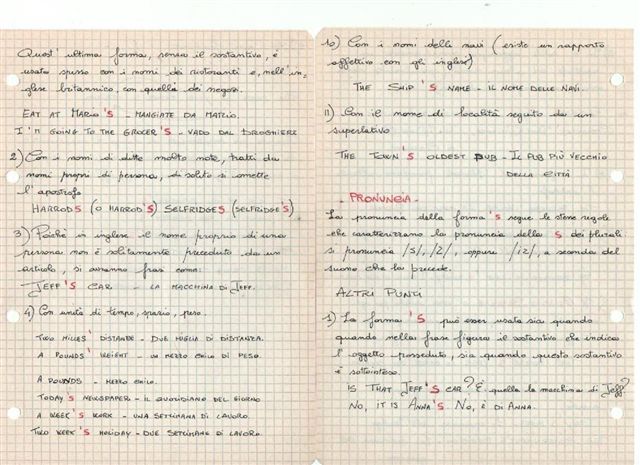 Quest' ultima forma, senza il sostantivo, è
usata spesso con i nomi dei ristoranti e, nell'in-
glese britannico, con quella dei negozi.
EAT AT MARIO'S - MANGIATE DA MARIO.
I'M GOING TO THE GROCER'S - VADO DAL DROGHIERE
2) Con i nomi di ditte molto note, tratti da
nomi propri di persona, di solito si omette
l'apostrofo
HARRODS (O HARROD'S) SELFRIDGES (SELFRIDGE'S)
3) Poiché in inglese il nome proprio di una
persona non è solitamente preceduto da un
articolo, si avranno frasi come:
JEFF'S CAR - LA MACCHINA DI JEFF.
4) Con unità di tempo, spazio, peso.
TWO MILLES' DISTANDE - DUE MIGLIA DI DISTANZA.
A POUNDS' WEIGHT - UN MEZZO CHILO DI PESO.
A POUNDS - MEZZO CHILO.
TODAY'S NEWSPAPER - IL QUOTIDIANO DEL GIORNO
A WEEK'S WORK - UNA SETTIMANA DI LAVORO.
TWO WEEK'S HOLIDAY - DUE SETTIMANE DI LAVORO.
10) Con i nomi delle navi (esiste un rapporto
affettivo con gli inglesi)
THE SHIP'S NAME - IL NOME DELLE NAVI.
11) Con il nome di località seguito da un
superlativo
THE TOWN'S OLDEST PUB - IL PUB PIÙ VECCHIO
DELLA CITTÀ
- PRONUNCIA -
La pronuncia della forma 'S segue le stesse regole
che caratterizzano la pronuncia della S dei plurali
si pronuncia /s/, /z/, oppure /iz/, a seconda del
suono che la precede.
ALTRI PUNTI
1) La forma 'S può esser usata sia quando
quando nella frase figura il sostantivo che indica
l'oggetto posseduto, sia quando questo sostantivo
è sottointeso.
IS THAT JEFF'S CAR? È quella la macchina di Jeff?
NO, IT IS ANNA'S NO, È DI ANNA.